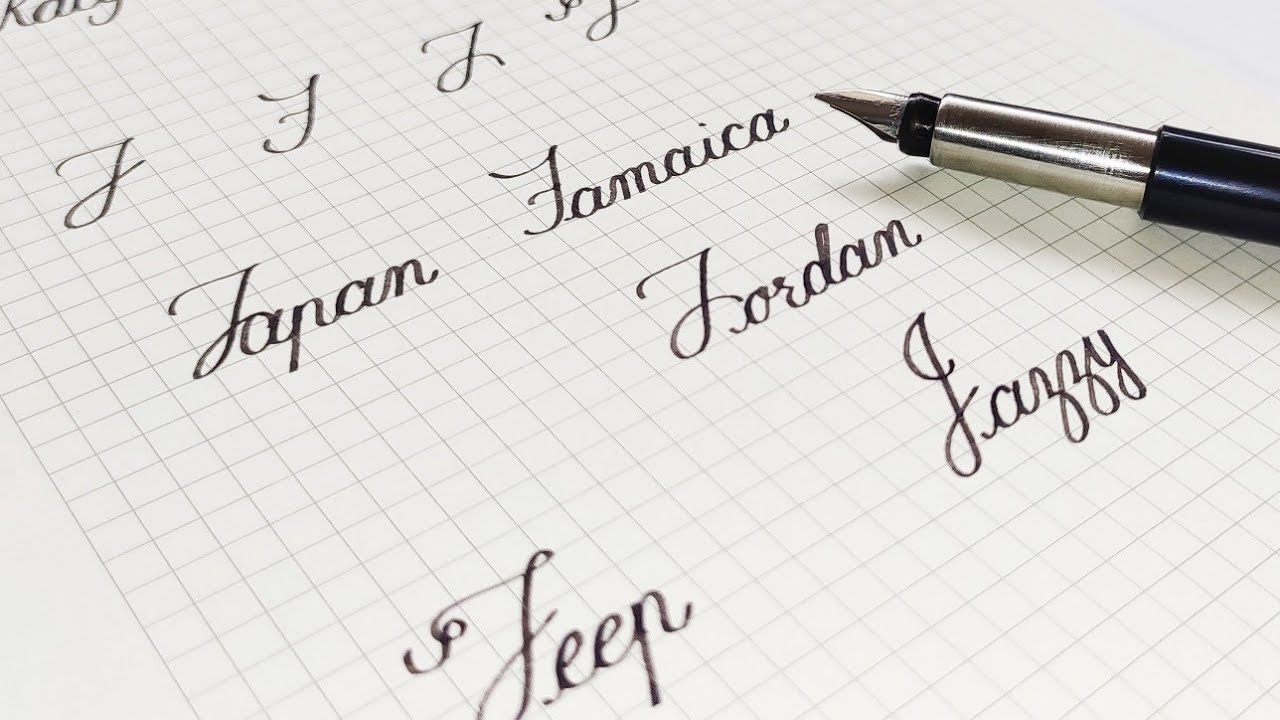 J J J J
Jamaica
Japan
Jordan
Jazzy
Jeep